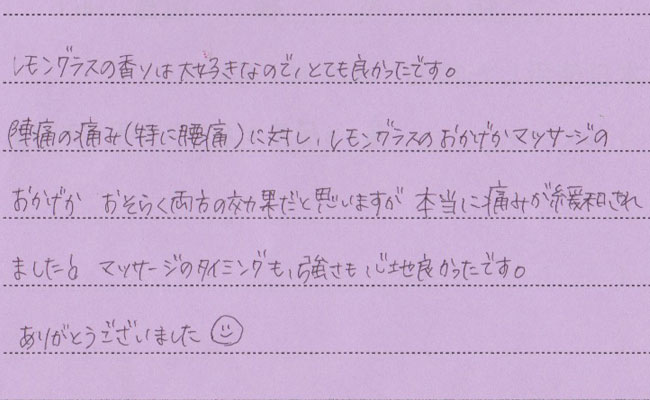 レモングラスの香りは大好きなので、とても良かったです。
陣痛の痛み(特に腰痛)に対し、レモングラスのおかげかマッサージの
おかげか おそらく両方の効果だと思いますが 本当に痛みが緩和され
ました。 マッサージのタイミングも、強さも、心地良かったです。
ありがとうございました☺